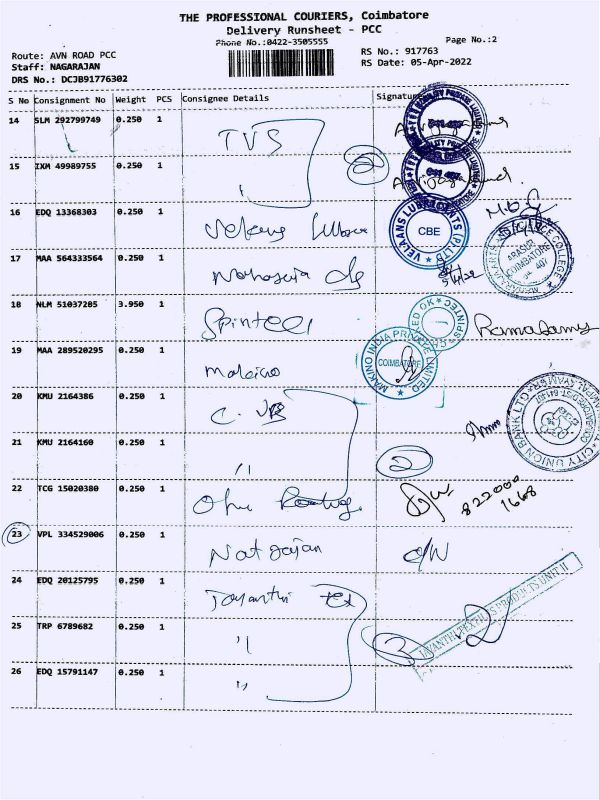 THE PROFESSIONAL COURIERS, Coimbatore
Delivery Runsheet - PCC
Phone No.:0422-3505555
Page No.:2
Route: AVN ROAD PCC
RS No.: 917763
Staff: NAGARAJAN
RS Date: 05-Apr-2022
DRS No.: DCJB91776302
S No Consignment No Weight PCS Consignee Details Signature
14 SLM 292799749 0.250 1 TVS
15 IXM 49989755 0.250 1 2
16 EDQ 13368303 0.250 1
VELAANS LUBRICENTS (P) LTD
CBE
17 MAA 564333564 0.250 1
ARASUR
COIMBATORE
641 407
18 NLM 51037285 3.950 1 Spinteci
SPINTEC
Ramasamy
19 MAA 289520295 0.250 1 makino
MAKINO INDIA PRIVATE LIMITED
COIMBATORE
20 KMU 2164386 0.250 1 C. UB
CITY UNION BANK LTD
21 KMU 2164160 0.250 1 " 2
22 TCG 15020380 0.250 1
822000
1668
23 VPL 334529006 0.250 1 Natrajan
24 EDQ 20125795 0.250 1 Jayanthi Tex
JAYANTHI TEXTILES PRODUCTS UNIT II
25 TRP 6789682 0.250 1 " 3 2
26 EDQ 15791147 0.250 1 "